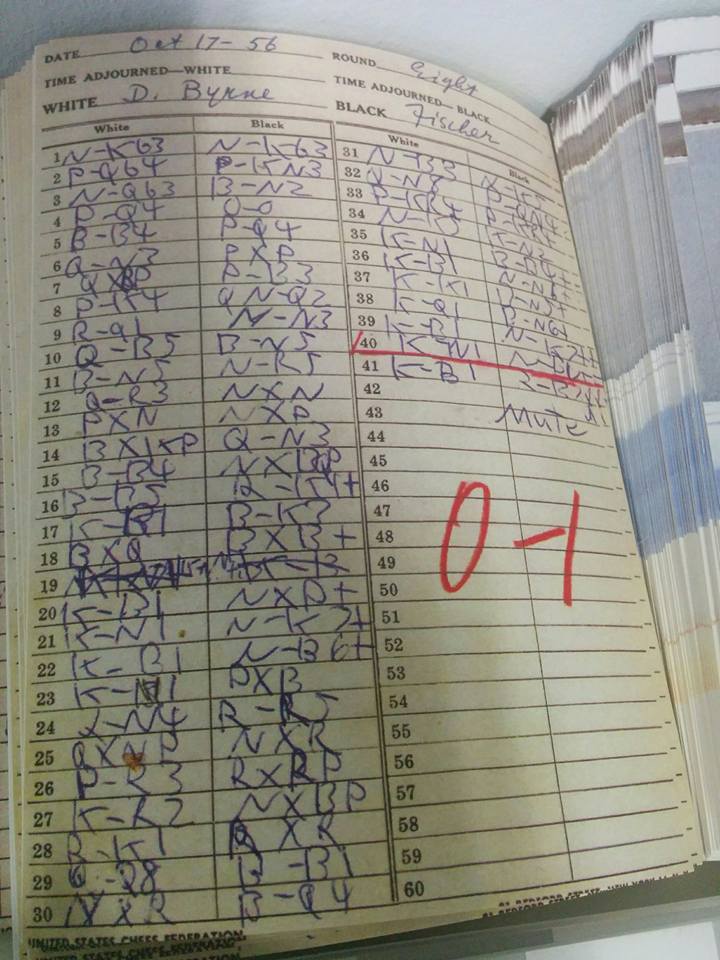 DATE Oct 17-56 ROUND Eight
TIME ADJOURNED—WHITE TIME ADJOURNED—BLACK
WHITE D. Byrne BLACK Fischer
White Black
1 N-KB3 N-KB3
2 P-QB4 P-KN3
3 N-QB3 B-N2
4 P-Q4 O-O
5 B-B4 P-Q4
6 Q-N3 PXP
7 QXBP P-B3
8 P-K4 QN-Q2
9 R-Q1 N-N3
10 Q-B5 B-N5
11 B-N5 N-R5
12 Q-R3 NXN
13 PXN NXP
14 BXKP Q-N3
15 B-B4 NXBP
16 B-B5 R-K1+
17 K-B1 B-K3
18 BXQ BXB+
19
20 K-B1 NXP+
21 K-N1 N-K7+
22 K-B1 N-B6+
23 K-N1 PXB
24 Q-N4 R-R5
25 QXNP NXR
26 P-R3 RXRP
27 K-R2 NXBP
28 R-K1 RXR
29 Q-Q8 B-B1
30 NXR B-Q4
White Black
31 N-B3 N-K5
32 Q-N8 P-QN4
33 P-KR4 P-KR4
34 N-K5 K-N2
35 K-N1 B-B4+
36 K-B1 N-N6+
37 K-K1 B-N5+
38 K-Q1 B-N6+
39 K-B1 N-K7+
40 K-N1 N-B6+
41 K-B1 R-B7
42
43 Mate
44
45
46
47
48 0-1
49
50
51
52
53
54
55
56
57
58
59
60
UNITED STATES CHESS FEDERATION